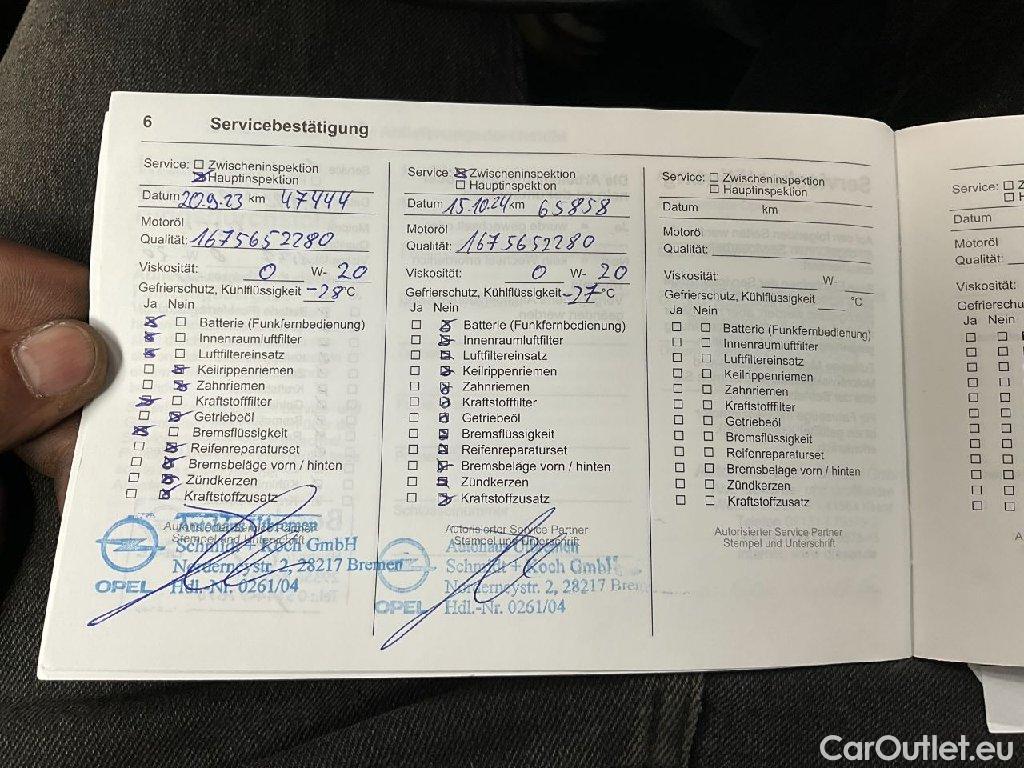 6 Servicebestätigung
Service: Zwischeninspektion
Hauptinspektion
Datum 20.9.23 km 47444
Motoröl
Qualität: 1675652280
Viskosität: 0 W- 20
Gefrierschutz, Kühlflüssigkeit -28 °C
Ja Nein
Batterie (Funkfernbedienung)
Innenraumluftfilter
Luftfiltereinsatz
Keilrippenriemen
Zahnriemen
Kraftstofffilter
Getriebeöl
Bremsflüssigkeit
Reifenreparaturset
Bremsbeläge vorn / hinten
Zündkerzen
Kraftstoffzusatz
Stempel und Unterschrift
Schmidt + Koch GmbH
Norderneystr. 2, 28217 Bremen
OPEL Hdl.-Nr. 0261/04
Service: Zwischeninspektion
Hauptinspektion
Datum: 15.10.24 km 65858
Motoröl
Qualität: 1675652280
Viskosität: 0 W- 20
Gefrierschutz, Kühlflüssigkeit -37 °C
Ja Nein
Batterie (Funkfernbedienung)
Innenraumluftfilter
Luftfiltereinsatz
Keilrippenriemen
Zahnriemen
Kraftstofffilter
Getriebeöl
Bremsflüssigkeit
Reifenreparaturset
Bremsbeläge vorn / hinten
Zündkerzen
Kraftstoffzusatz
Autorisierter Service Partner
Stempel und Unterschrift
Autohaus
Schmidt + Koch GmbH
Norderneystr. 2, 28217 Bremen
OPEL Hdl.-Nr. 0261/04
Service: Zwischeninspektion
Hauptinspektion
Datum km
Motoröl
Qualität:
Viskosität: W-
Gefrierschutz, Kühlflüssigkeit °C
Ja Nein
Batterie (Funkfernbedienung)
Innenraumluftfilter
Luftfiltereinsatz
Keilrippenriemen
Zahnriemen
Kraftstofffilter
Getriebeöl
Bremsflüssigkeit
Reifenreparaturset
Bremsbeläge vorn / hinten
Zündkerzen
Kraftstoffzusatz
Autorisierter Service Partner
Stempel und Unterschrift
Service: Z
H
Datum
Motoröl
Qualität:
Viskosität:
Gefrierschu
Ja Nein
CarOutlet.eu